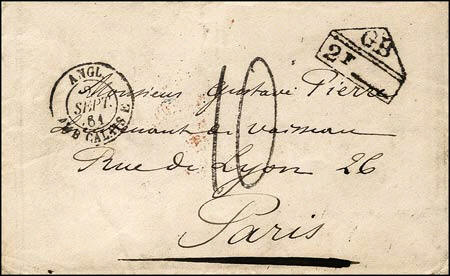 GB
2F
ANGL.
SEPT.
61
AMB. CALAIS E
10
Monsieur Gustave Pierre
Lieutenant de Vaisseau
Rue de Lyon 26
Paris